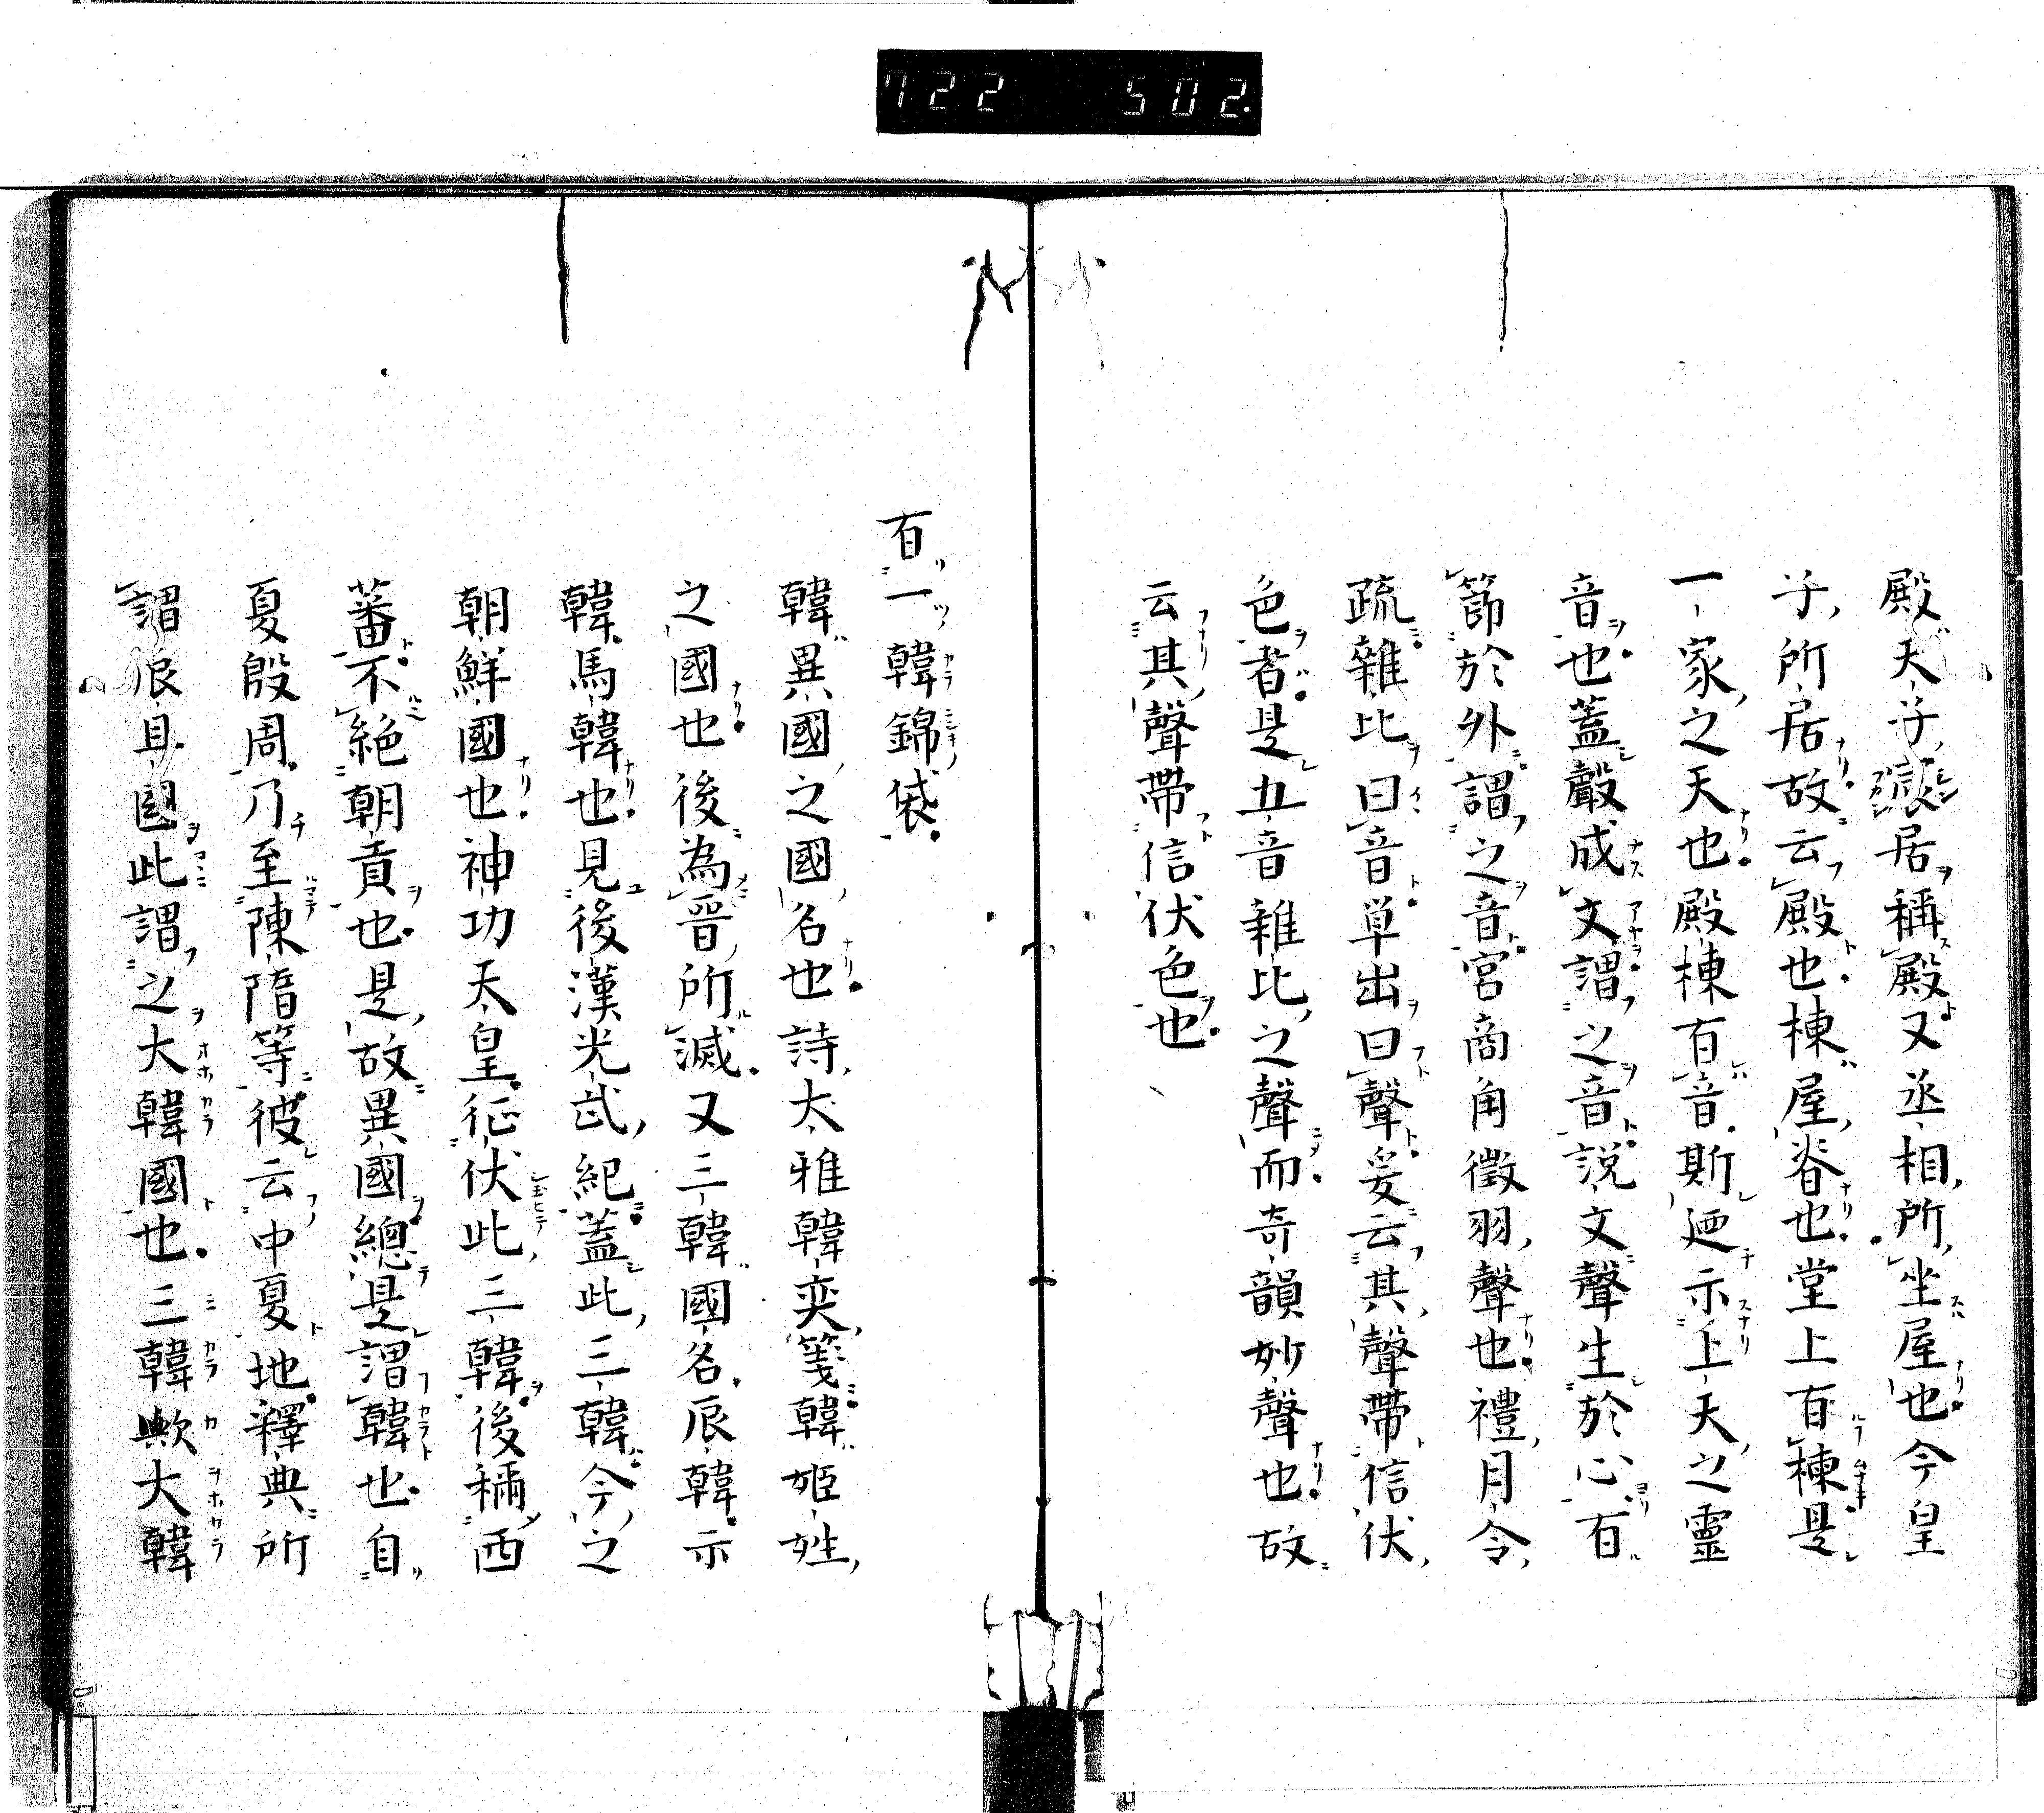 722 502
殿天子居稱殿又丞相所坐屋也今皇
子所居故云殿也棟屋脊也堂上有棟是
一家之天也殿棟有音斯廼示上天之靈
音也蓋聲成文謂之音説文聲生於心有
節於外謂之音宮商角徵羽聲也禮月令
疏雜比曰音単出曰聲妥云其聲帶信伏
色者是五音雜比之聲而奇韻妙聲也故
云其聲帶信伏色也
有一韓錦袋
韓異國之國名也詩大雅韓奕箋韓姫姓
之國也後為晋所滅又三韓國名辰韓示
韓馬韓也見後漢光武紀蓋此三韓今之
朝鮮國也神功天皇征伏此三韓後稱西
蕃不絶朝貢也是故異國總是謂韓也自
夏殷周乃至陳隋等彼云中夏地釋典所
謂振旦國此謂之大韓國也三韓歟大韓